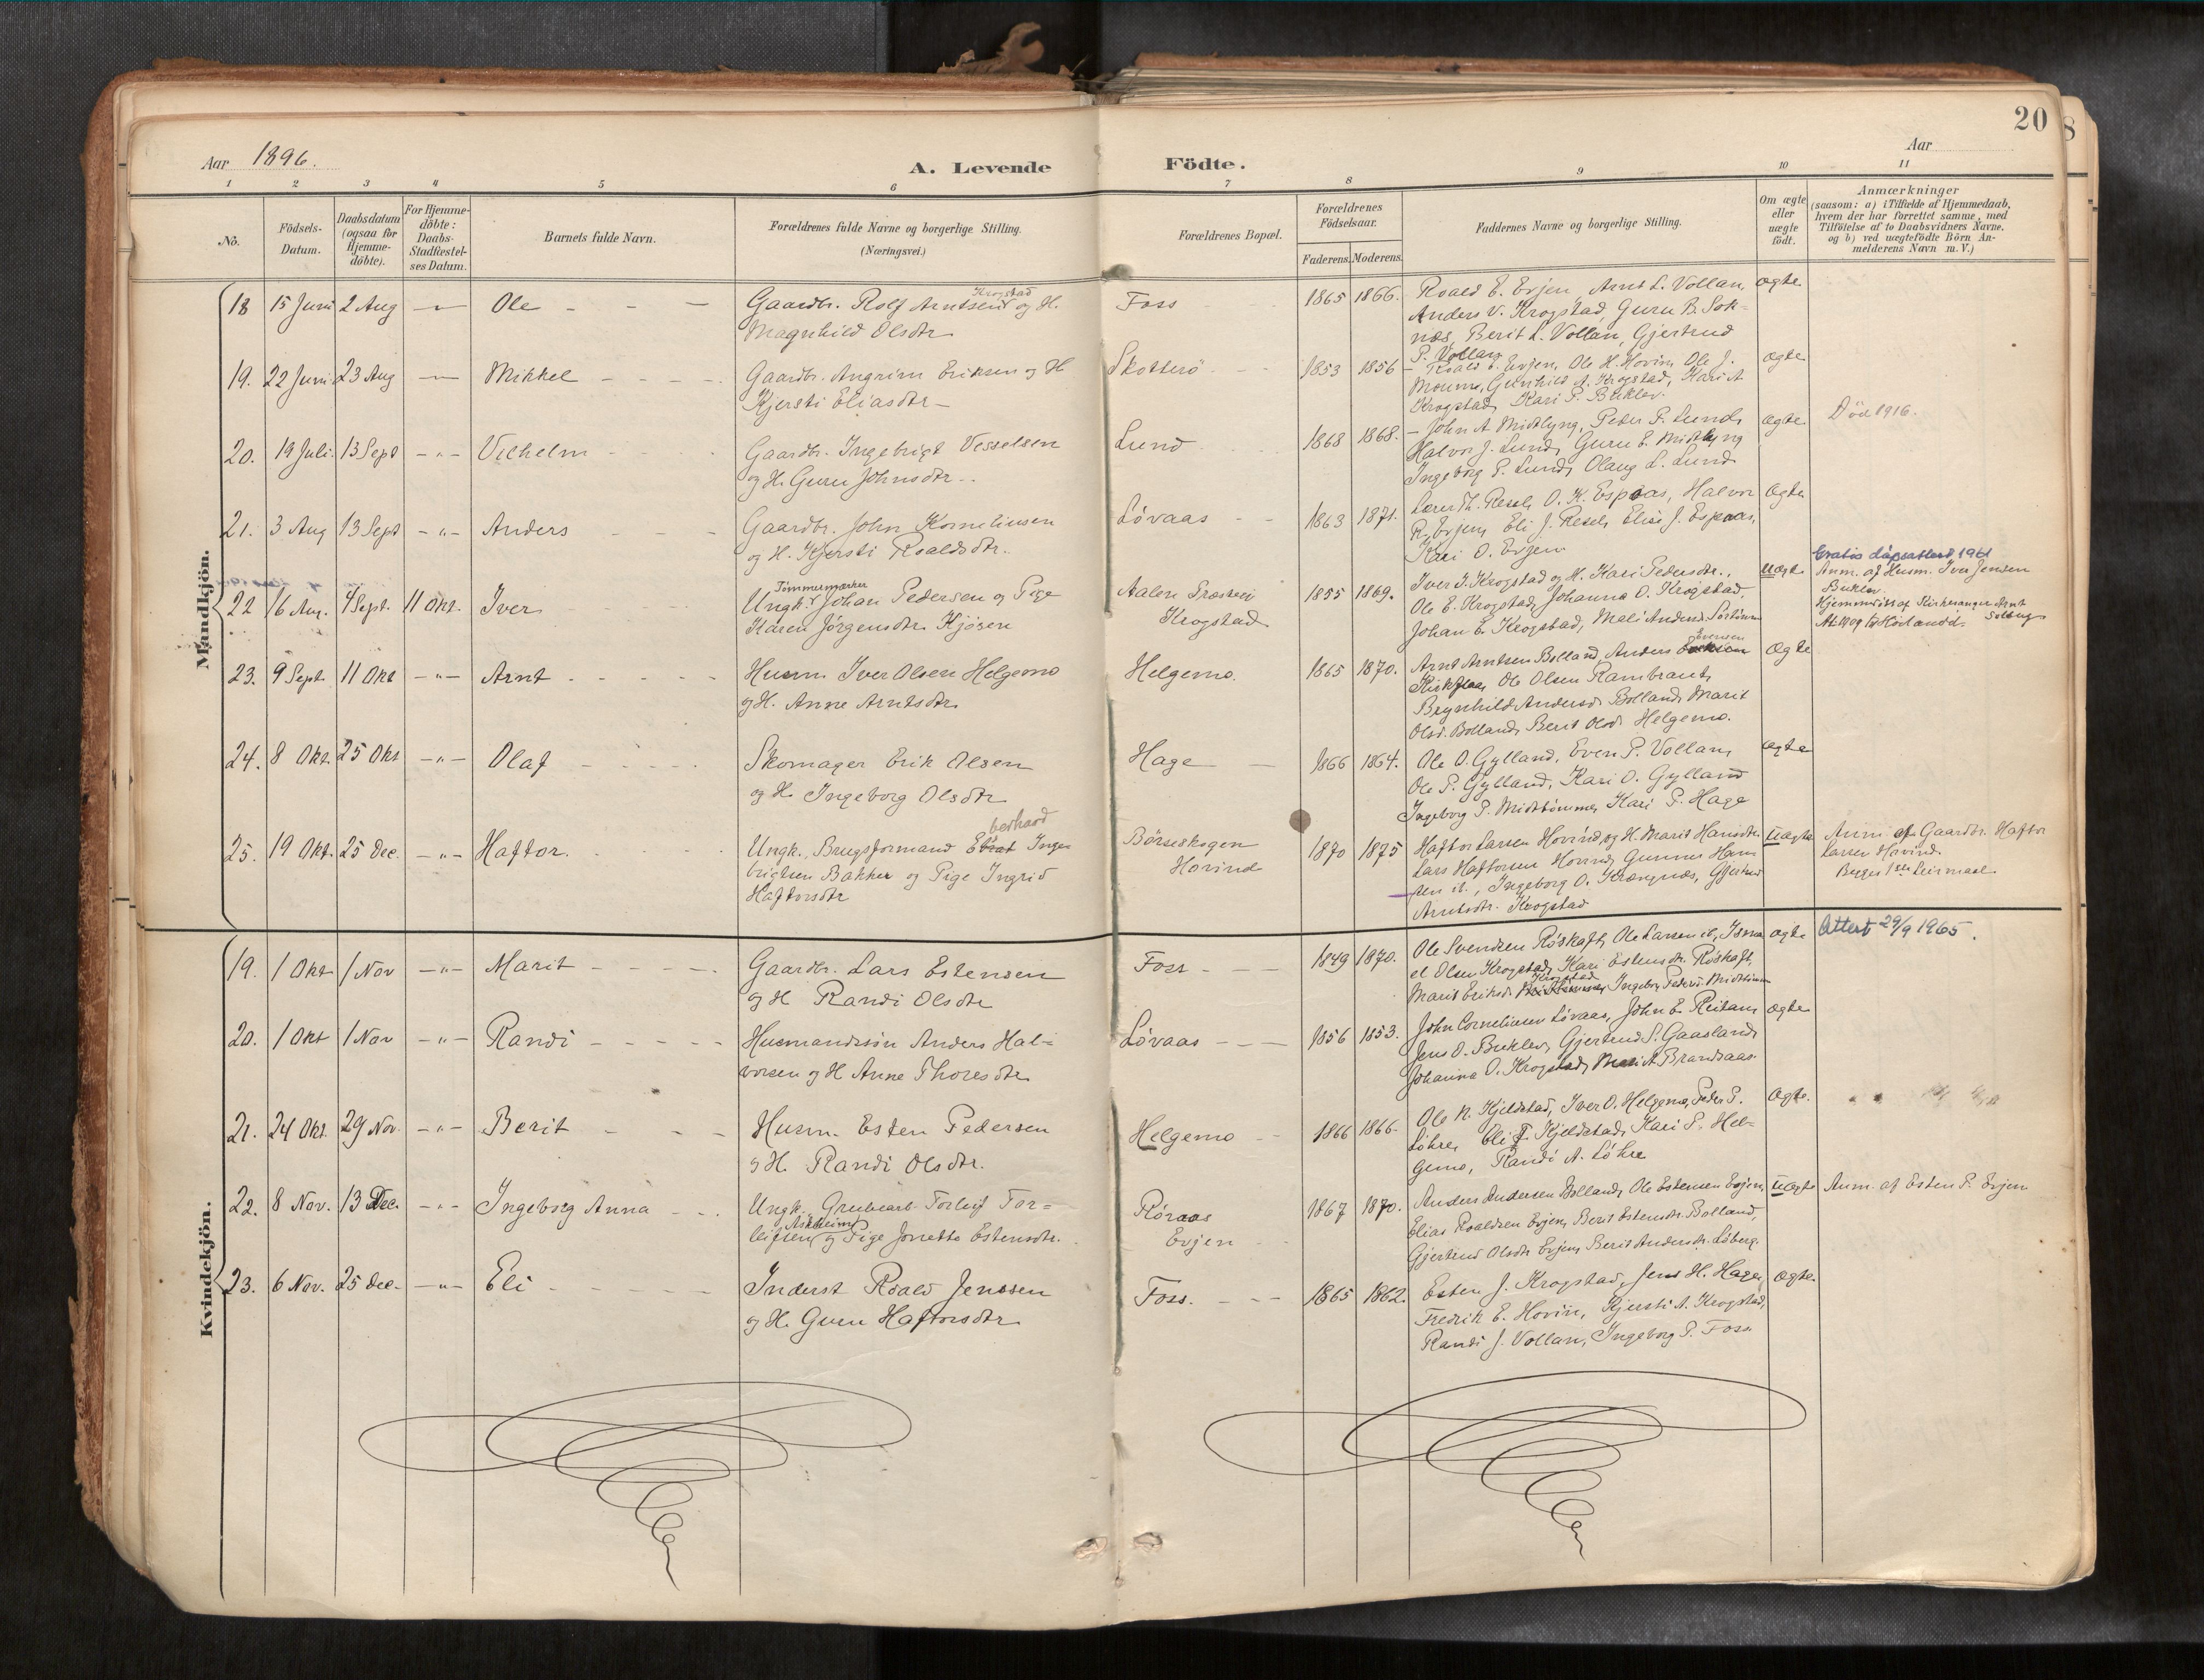 20
Aar 1896.
A. Levende Födte.
Aar
1 2 3 4 5 6 7 8 9 10 11
No.
Födsels-
Datum.
Daabsdatum
(ogsaa for
Hjemme-
döbte).
For Hjemme-
döbte:
Daabs-
Stadfæstel-
ses Datum.
Barnets fulde Navn.
Forældrenes fulde Navne og borgerlige Stilling.
(Næringsvei.)
Forældrenes Bopæl.
Forældrenes
Födselsaar.
Faderens. Moderens.
Faddernes Navne og borgerlige Stilling.
Om ægte
eller
uægte
födt.
Anmærkninger
(saasom: a) i Tilfælde af Hjemmedaab,
hvem der har forrettet samme, med
Tilföielse af to Daabsvidners Navne,
og b) ved uægtefödte Börn An-
melderens Navn m. V.)
Mandkjön.
18 15 Juni 2 Aug — Ole - - -
Gaardbr. Rolf Arntsen Krogstad og H.
Magnhild Olsdtr
Foss
1865 1866.
Roald E. Evjen Arnt L. Vollan,
Anders V. Krogstad, Guru B. Sok-
næs, Berit L. Vollan, Gjertrud
P. Vollan
ægte
19. 22 Juni 23 Aug — Mikkel - - - -
Gaardbr. Angrim Eriksen og H
Kjersti Eliasdtr -
Skotterö
1853 1856
- Roald E. Evjen, Ole H. Hovin, Ole J.
Moumo, Gunhild A. Krogstad, Kari A
Krogstad, Kari P. Buklev.
ægte
20. 19 Juli. 13 Sept -"- Vilhelm
Gaardbr. Ingebrigt Vesselsen
og H. Guru Johnsdtr..
Lund
1868 1868.
- John A Midtlyng, Peder P. Lund,
Halvor J. Lund, Guru E. Midtlyng
Ingeborg P. Lund, Olaug L. Lund
ægte
Död 1916.
21. 3 Aug 13 Sept -"- Anders
Gaardbr. John Korneliusen
og H. Kjersti Roaldsdtr..
Lövaas
1863 1871.
Lærer Th. Resel, O. K. Espaas, Halvor
R. Evjen, Eli J. Resel, Elise J. Espaas,
Kari O. Evjen
ægte
22 16 Aug. 4 Sept. 11 Okt. Iver
Tömmermærker
Ungk. Johan Pedersen og Pige
Karen Jörgensdtr. Kjösen
Aalen Præstegj
Krogstad
1855 1869.
Iver J. Krogstad og H. Kari Pedersdtr.,
Ole E. Krogstad, Johanna O. Krogstad,
Johan E. Krogstad, Mali Andersd.
uægte
Gratis dåpsattest 1961
Anm. af Husm. Iver Jensen
Buklev.
Hjemmedöbt af Kirkesanger Arnt
Solberg
23. 9 Sept. 11 Okt -"- Arnt - - - -
Husm. Iver Olsen Helgemo
og H. Anne Arntsdtr.
Helgemo.
1865 1870.
Arnt Arntsen Bolland, Anders Evensen
Kirkflaa, Ole Olsen Rambraut,
Brynhild Andersd. Bolland, Marit
Olsd. Bolland, Berit Olsd. Helgemo.
ægte
24. 8 Okt. 25 Okt -"- Olaf - - - -
Skomager Erik Olsen
og H. Ingeborg Olsdtr
Hage
1866 1864.
Ole O. Gylland, Even P. Vollan,
Ole P. Gylland, Kari O. Gylland
Ingeborg P. Midttömme, Kari P. Hage
ægte
25. 19 Okt. 25 Dec. -"- Haftor.
berhard
Ungk., Brugsformand Inge-
brigtsen Bakker og Pige Ingrid
Haftorsdtr
Börseskogen
Horind
1870 1875
Haftor Larsen Hovind, og H. Marit Hansdtr.
Lars Haftorsen Hovind, Gunnar Han-
sen ib., Ingeborg O. Krængnæs, Gjertrud
Arntsdtr. Krogstad
uægte
Anm. af Gaardbr. Haftor
Larsen Hovind.
Begges 1ste Leiermaal
Kvindekjön.
19. 1 Okt 1 Nov -"- Marit - - - -
Gaardbr. Lars Estensen
og H Randi Olsdtr
Foss
1849 1870.
Ole Svendsen Röskaft, Ole Larsen ib, Isma-
el Olsen Krogstad, Kari Estensdtr. Röskaft,
Marit Eriksd. Krogstad Ingeborg Pedersd. Midttömme
ægte
Attest 29/9 1965.
20. 1 Okt 1 Nov -"- Randi - - - -
Husmandssön Anders Hal-
vorsen og H Anne Thoresdtr.
Lövaas
1856 1853.
John Corneliusen Lövaas, John E. Reitan,
Jens O. Buklev, Gjertrud S. Gaasland,
Johanna O. Krogstad, Mari A. Brandsaas.
ægte
21. 24 Okt. 29 Nov. -"- Berit - - -
Husm. Esten Pedersen
og H. Randi Olsdtr.
Helgemo
1866 1866.
Ole N. Kjeldstad, Iver O. Helgemo, Peder P.
Löhre, Eli T. Kjeldstad, Kari P. Hel-
gemo, Randi A. Löhre
ægte.
22. 8 Nov. 13 Dec. -"- Ingeborg Anna
Ungk., Grubearb. Torleif Tor-
leifsen Askheim og Pige Jonetta Estensdtr.
Röraas
Evjen
1867 1870.
Anders Andersen Bolland, Ole Estensen Evjen,
Elias Roaldsen Evjen, Berit Estensdtr. Bolland,
Gjertrud Olsdtr Evjen, Berit Andersdtr. Löberg.
uægte
Anm. af Esten P. Evjen
23. 6 Nov. 25 Dec. -"- Eli - - - -
Inderst Roald Jenssen
og H. Guru Haftorsdtr
Foss.
1865 1862.
Esten J. Krogstad, Jens H. Hage,
Fredrik E. Hovin, Kjersti A. Krogstad,
Randi J. Vollan, Ingeborg P. Foss
ægte.